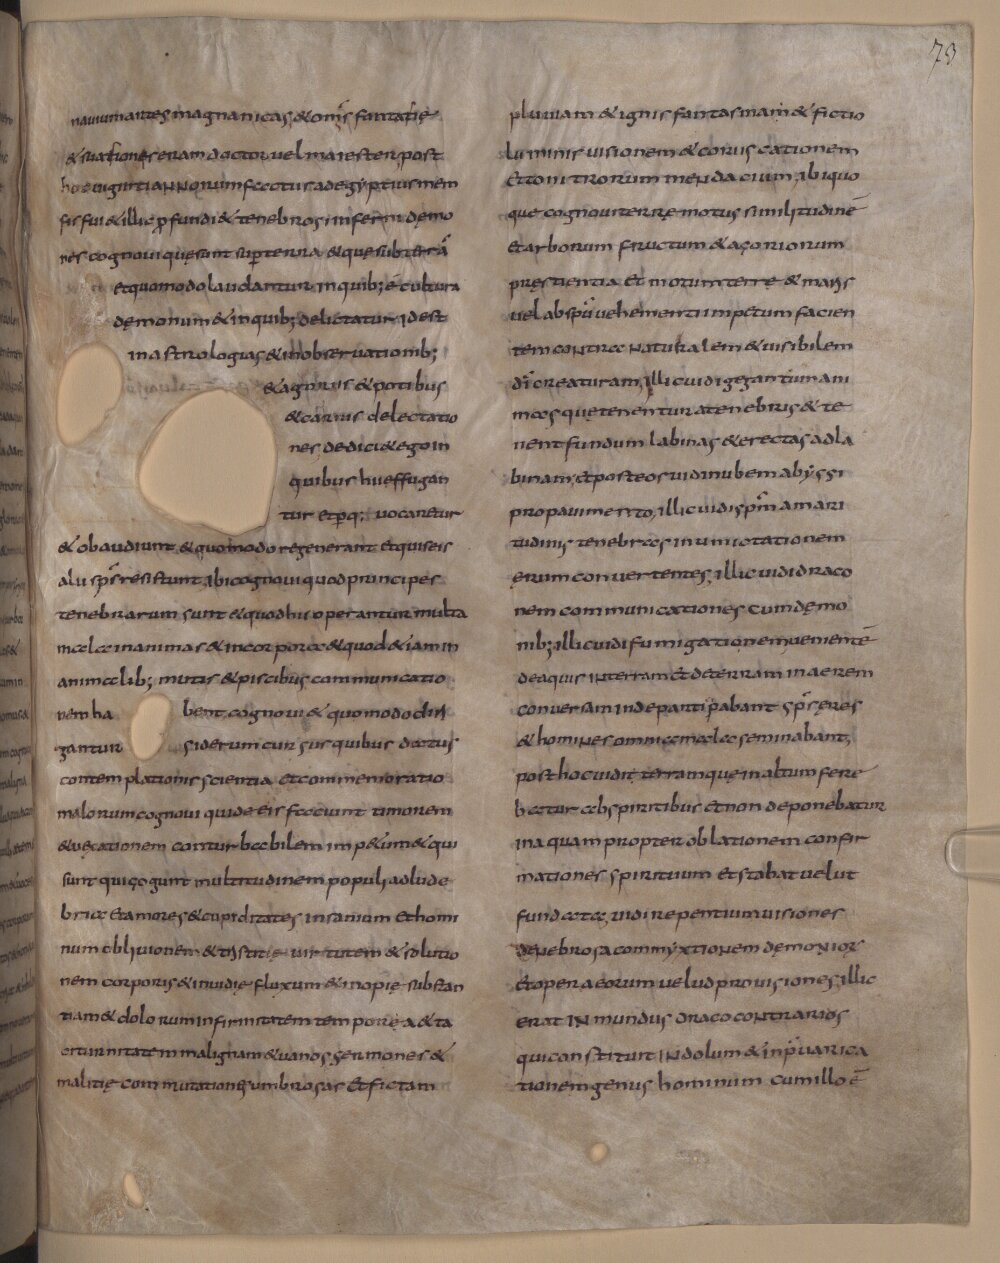 73
& suationes eram doctor vel magester post
hoc viginti annorum factus ad egyptius mem
fis fui & illic profundi & tenebrosi inferni demo
nes cognovi quę sunt sup terra & quę sub terrā
et quomodo laudantur in quib; ē cultura
dęmonum & in quib; delectatur, id est
in astrologias & in observationib;
& agnius & potibus
& carnis delectatio
nes dedici & ego in
quibus hueffugan
tur et pq; vocaretur
& obaudiunt & quomodo regenerant et quiseis
alii sps resistunt, ibi cognovi quod principes
tenebrarum sunt & quod his operantur multa
mala in animas & in corpora & quod & iam in
animalib; mutis & piscibus communicatio
nem ha bent cognovi & quomodo diri
gantur siderum cursus quibus datus
contemplationis scientia et commemoratio
malorum cognovi qui de eis faciunt timonem
& vęcationem conturbabilem impetum & qui
sunt qui çogunt multitudinem populi ad lude
bria et amores & cupiditates insanium et homi
num oblivionem & iustitię virtutem & solutio
nem corporis & invidię fluxum & inopię substan
tiam & dolorum infirmitatem temporea & ta
citurnitatem malignam & vanos sermones &
malitię commutationes umbrosas et fictam
pluviam & ignis fantasmam & fictio
luminis visionem & coruscationem
et tonitrorum mendacium, ibi quo
que cognovi terrę motus similitudinē
et arborum fructum & açoriorum
pręstientia et motum terrę & maris
vel abspū vehementi impetum facien
tem contra naturalem & visibilem
dī creaturam, illic vidi gegantum ani
mas quę tenentur a tenebris & te
nent fundum labinas & erectas ad la
binam, et posteos vidi nubem abyssi
pro pavimento, illic vidi spm amari
tudinis tenebras in immotationem
ęrum convertentes, illic vidi draco
nem communicationes cum dęmo
nib; illic vidi fumigationem venientē
de aquis in terram et de terram in aerem
conversam inde partipabant sps ęres
& homines omnia mala seminabant,
post hoc vidi terram quę in altum fere
batur ab spiritibus et non deponebatur
in aquam propter oblationem confir
mationes spirituum et stabat velut
fundata, vidi repentium visiones
tenebrosa commyxtionem dęmonior
et opera eorum velud provisiones, illic
erat in mundus draco contrarios
qui constituit in dolum & in pvarica
tionem genus hominum cum illo ē